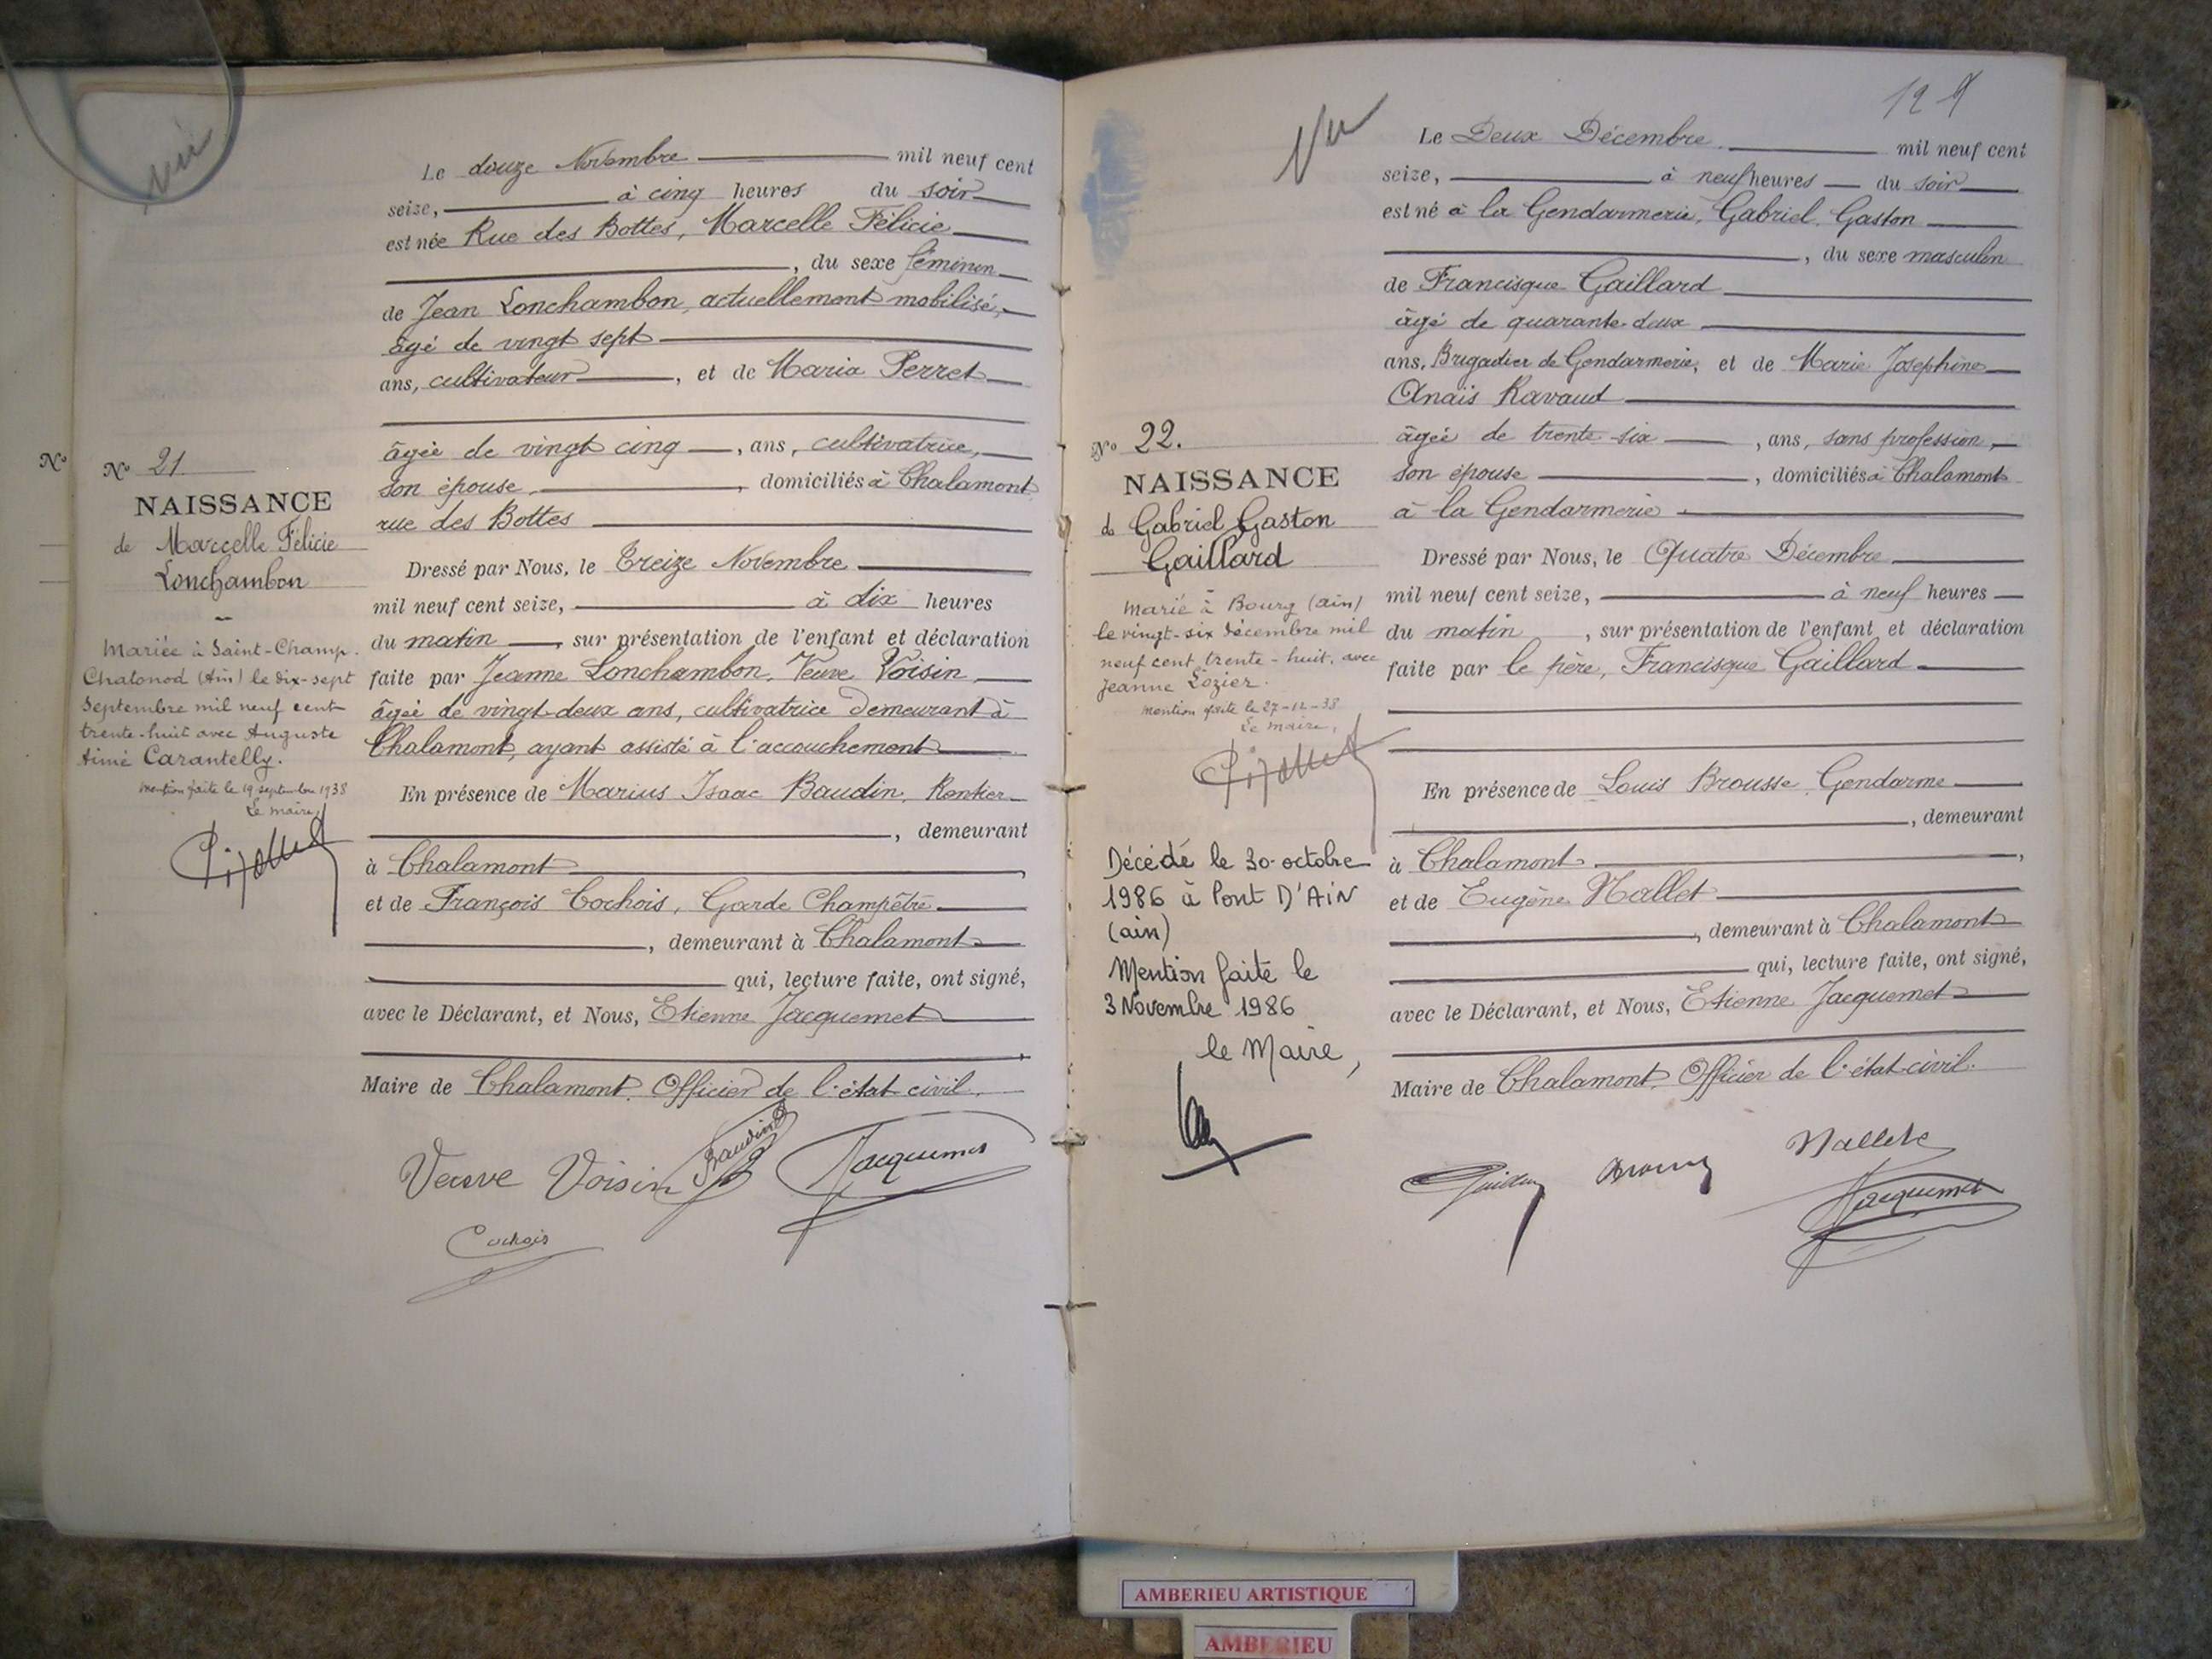 vu
Le douze Novembre mil neuf cent
seize, à cinq heures du soir
est née Rue des Bottes, Marcelle Félicie
, du sexe féminin
de Jean Lonchambon, actuellement mobilisé,
âgé de vingt sept
ans, cultivateur, et de Maria Perret
âgée de vingt cinq, ans, cultivatrice,
son épouse, domiciliés à Chalamont
rue des Bottes
Dressé par Nous, le Treize Novembre
mil neuf cent seize, à dix heures
du matin, sur présentation de l'enfant et déclaration
faite par Jeanne Lonchambon, Veuve Voisin,
âgée de vingt-deux ans, cultivatrice demeurant à
Chalamont, ayant assisté à l'accouchement
En présence de Marius Isaac Baudin, Rentier
, demeurant
à Chalamont,
et de François Cochois, Garde Champêtre
, demeurant à Chalamont
qui, lecture faite, ont signé,
avec le Déclarant, et Nous, Etienne Jacquemet
Maire de Chalamont, Officier de l'état civil.
Veuve Voisin Baudin Jacquemet
Cochois
N°
N° 21
NAISSANCE
de Marcelle Félicie
Lonchambon
Mariée à Saint-Champ-
Chatonod (Ain) le dix-sept
Septembre mil neuf cent
trente-huit avec Auguste
Aimé Carantelly.
Mention faite le 19 septembre 1938
Le maire,
129
Vu
Le Deux Décembre mil neuf cent
seize, à neuf heures du soir
est né à la Gendarmerie, Gabriel Gaston
, du sexe masculin
de Francisque Gaillard
âgé de quarante-deux
ans, Brigadier de Gendarmerie, et de Marie Josephine
Anaïs Ravaud
âgée de trente-six, ans, sans profession,
son épouse, domiciliés à Chalamont
à la Gendarmerie
Dressé par Nous, le Quatre Décembre
mil neuf cent seize, à neuf heures
du matin, sur présentation de l'enfant et déclaration
faite par le père, Francisque Gaillard
En présence de Louis Brousse, Gendarme
, demeurant
à Chalamont,
et de Eugène Nallet
, demeurant à Chalamont
qui, lecture faite, ont signé,
avec le Déclarant, et Nous, Etienne Jacquemet
Maire de Chalamont, Officier de l'état-civil.
Jacquemet
N° 22.
NAISSANCE
de Gabriel Gaston
Gaillard
Marié à Bourg (Ain)
le vingt-six décembre mil
neuf cent trente-huit, avec
Jeanne Lozier.
Mention faite le 27-12-38
Le maire,
Décédé le 30 octobre
1986 à Pont D'Ain
(ain)
Mention faite le
3 Novembre 1986
le Maire,
AMBERIEU ARTISTIQUE
AMBERIEU